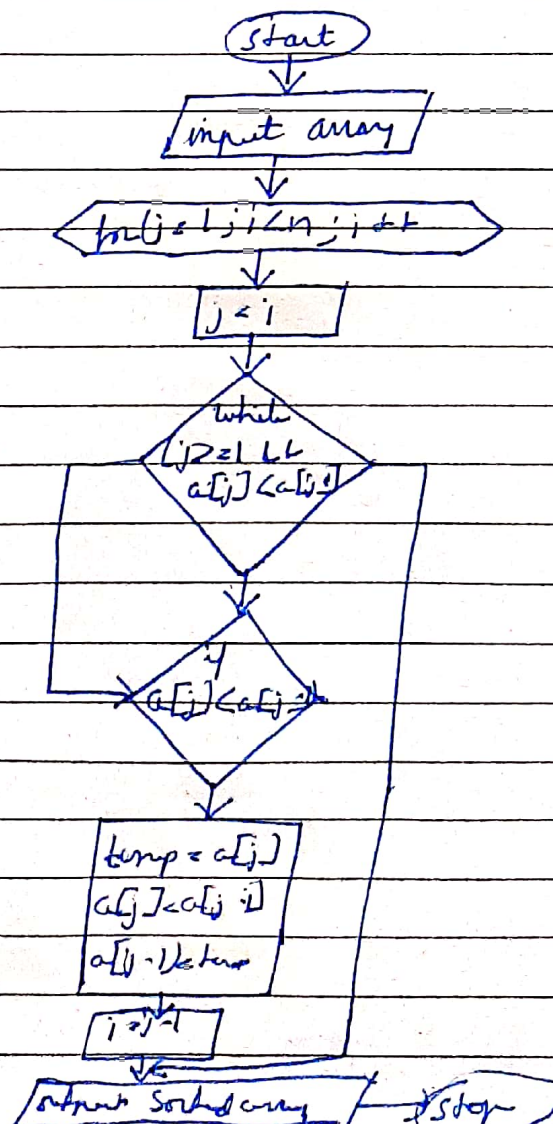 start
input array
for(j=1; i<n; i++
j < i
while
(j>=1 &&
a[j] <a[j-1]
if
a[j]<a[j-1]
temp = a[j]
a[j]<a[j-1]
a[j-1]<temp
j=j-1
output Sorted array
stop